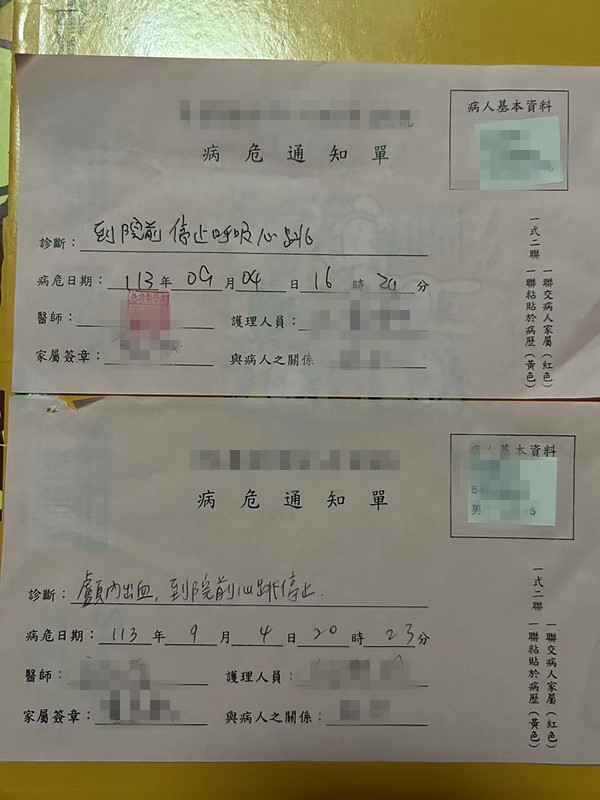 病人基本資料
病危通知單
診斷：到院前停止呼吸心跳
病危日期：113年09月04日16時20分
醫師：
護理人員：
家屬簽章：
與病人之關係
一式二聯
一聯交病人家屬（紅色）
一聯粘貼於病歷（黃色）
病人基本資料
男
病危通知單
診斷：顱內出血，到院前心跳停止
病危日期：113年9月4日20時23分
醫師：
護理人員：
家屬簽章：
與病人之關係：
一式二聯
一聯交病人家屬（紅色）
一聯粘貼於病歷（黃色）